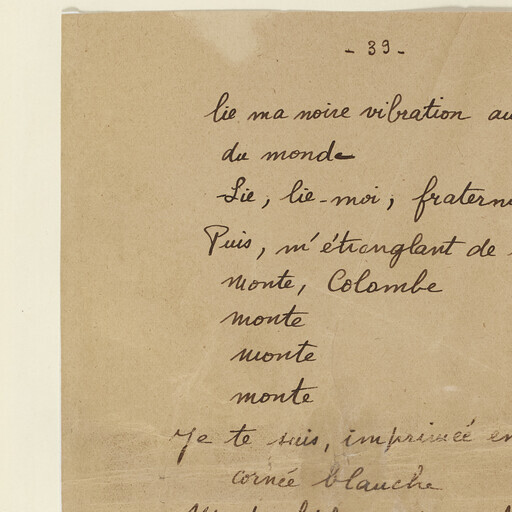 - 39 -
lie ma noire vibration au
du monde
Lie, lie-moi, fratern
Puis, m'étranglant de
monte, Colombe
monte
monte
monte
Je te suis, imprimée en
cornée blanche